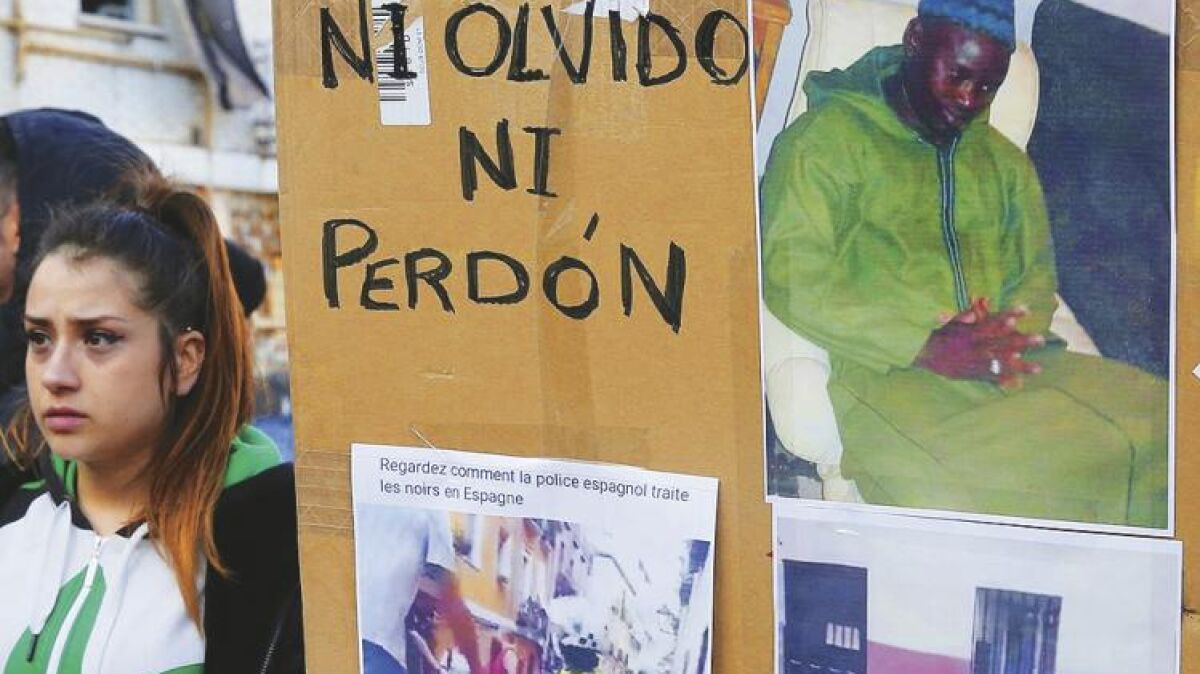 NI OLVIDO
NI
PERDÓN
Regardez comment la police espagnol traite
les noirs en Espagne